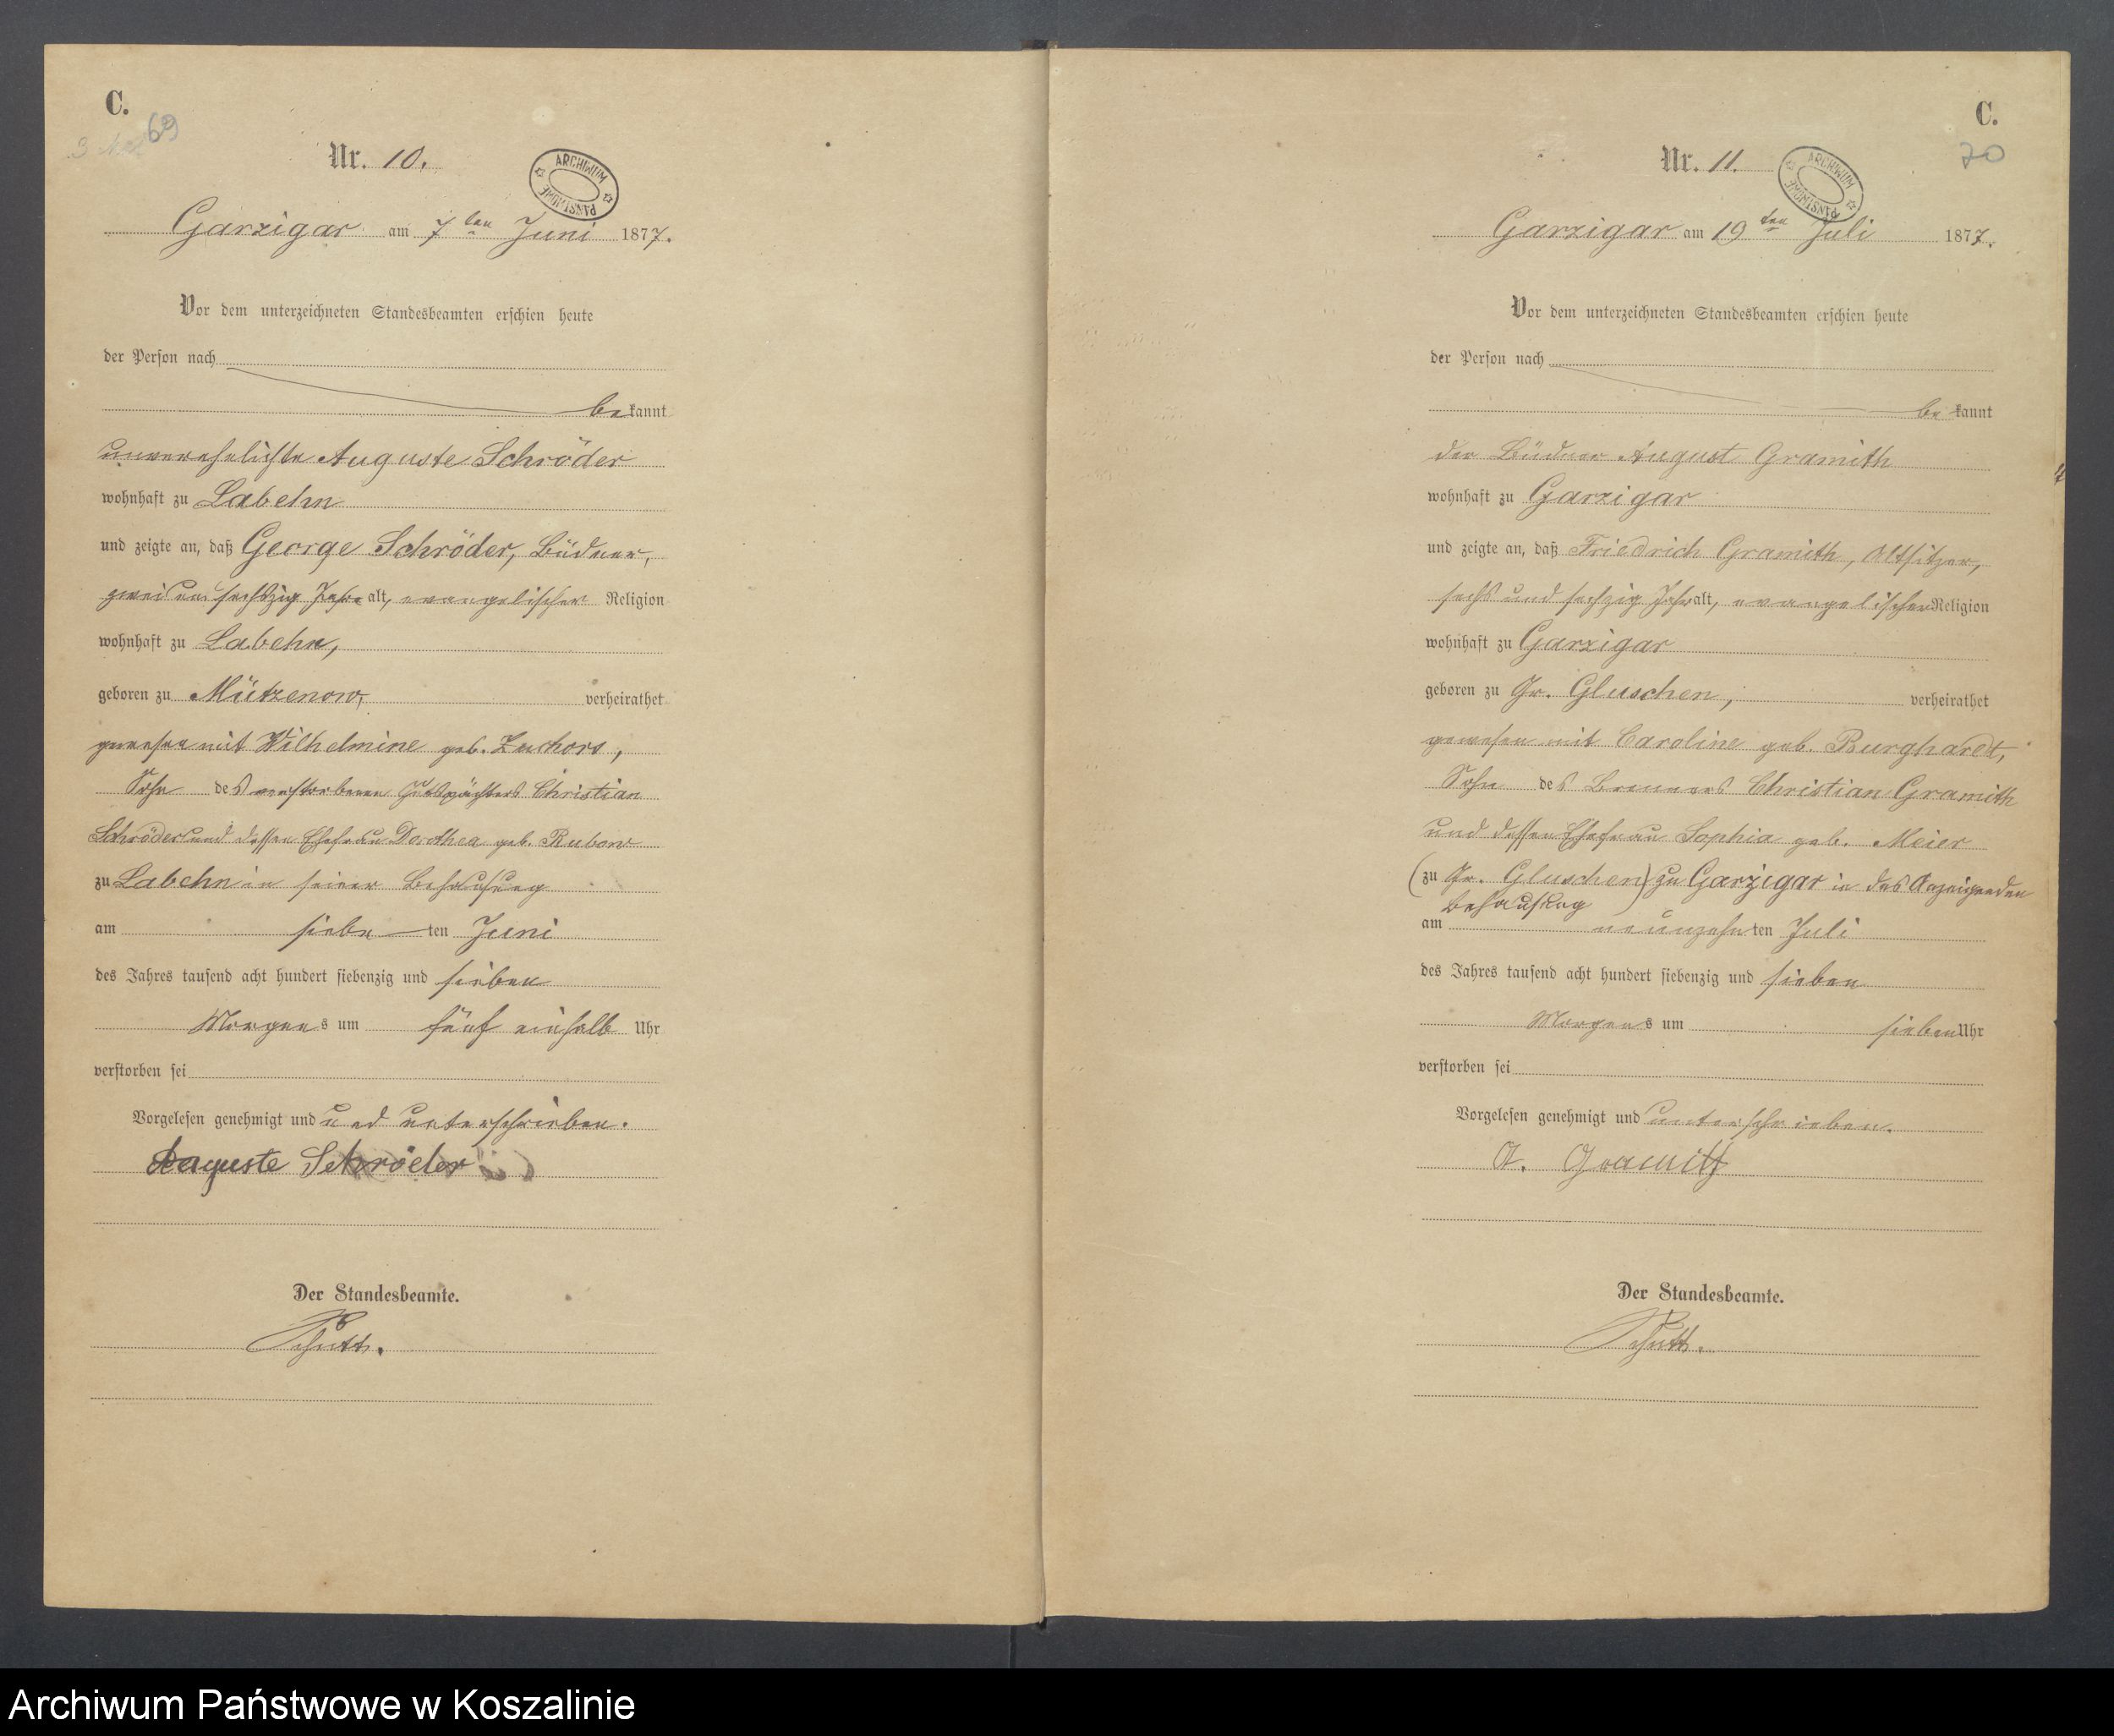 C.
69
Nr. 10.
ARCHIWUM PAŃSTWOWE
Garzigar am 7ten Juni 1877.
Vor dem unterzeichneten Standesbeamten erschien heute
der Person nach
bekannt
unverehelichte Auguste Schröder
wohnhaft zu Labehn
und zeigte an, daß George Schröder, Büdner,
zwei und sechszig Jahre alt, evangelischer Religion
wohnhaft zu Labehn,
geboren zu Mützenow, verheirathet
gewesen mit Wilhelmine geb. Zuchors,
Sohn des verstorbenen Gutspächters Christian
Schröder und dessen Ehefrau Dorothea geb. Rubow
zu Labehn in seiner Behausung
am siebenten Juni
des Jahres tausend acht hundert siebenzig und sieben
Morgens um fünf einhalb Uhr
verstorben sei
Vorgelesen genehmigt und und unterschrieben.
Auguste Schröder
Der Standesbeamte.
Schutt.
C.
70
Nr. 11.
ARCHIWUM PAŃSTWOWE
Garzigar am 19ten Juli 1877.
Vor dem unterzeichneten Standesbeamten erschien heute
der Person nach
bekannt
der Büdner August Gramith
wohnhaft zu Garzigar
und zeigte an, daß Friedrich Gramith, Altsitzer,
sechs und sechzig Jahr alt, evangelischer Religion
wohnhaft zu Garzigar
geboren zu Gr. Gluschen, verheirathet
gewesen mit Caroline geb. Burghardt,
Sohn des Brenners Christian Gramith
und dessen Ehefrau Sophia geb. Meier
(zu Gr. Gluschen) zu Garzigar in des Anzeigenden
Behausung
am neunzehnten Juli
des Jahres tausend acht hundert siebenzig und sieben
Morgens um sieben Uhr
verstorben sei
Vorgelesen genehmigt und unterschrieben.
A. Gramith
Der Standesbeamte.
Schutt.
Archiwum Państwowe w Koszalinie